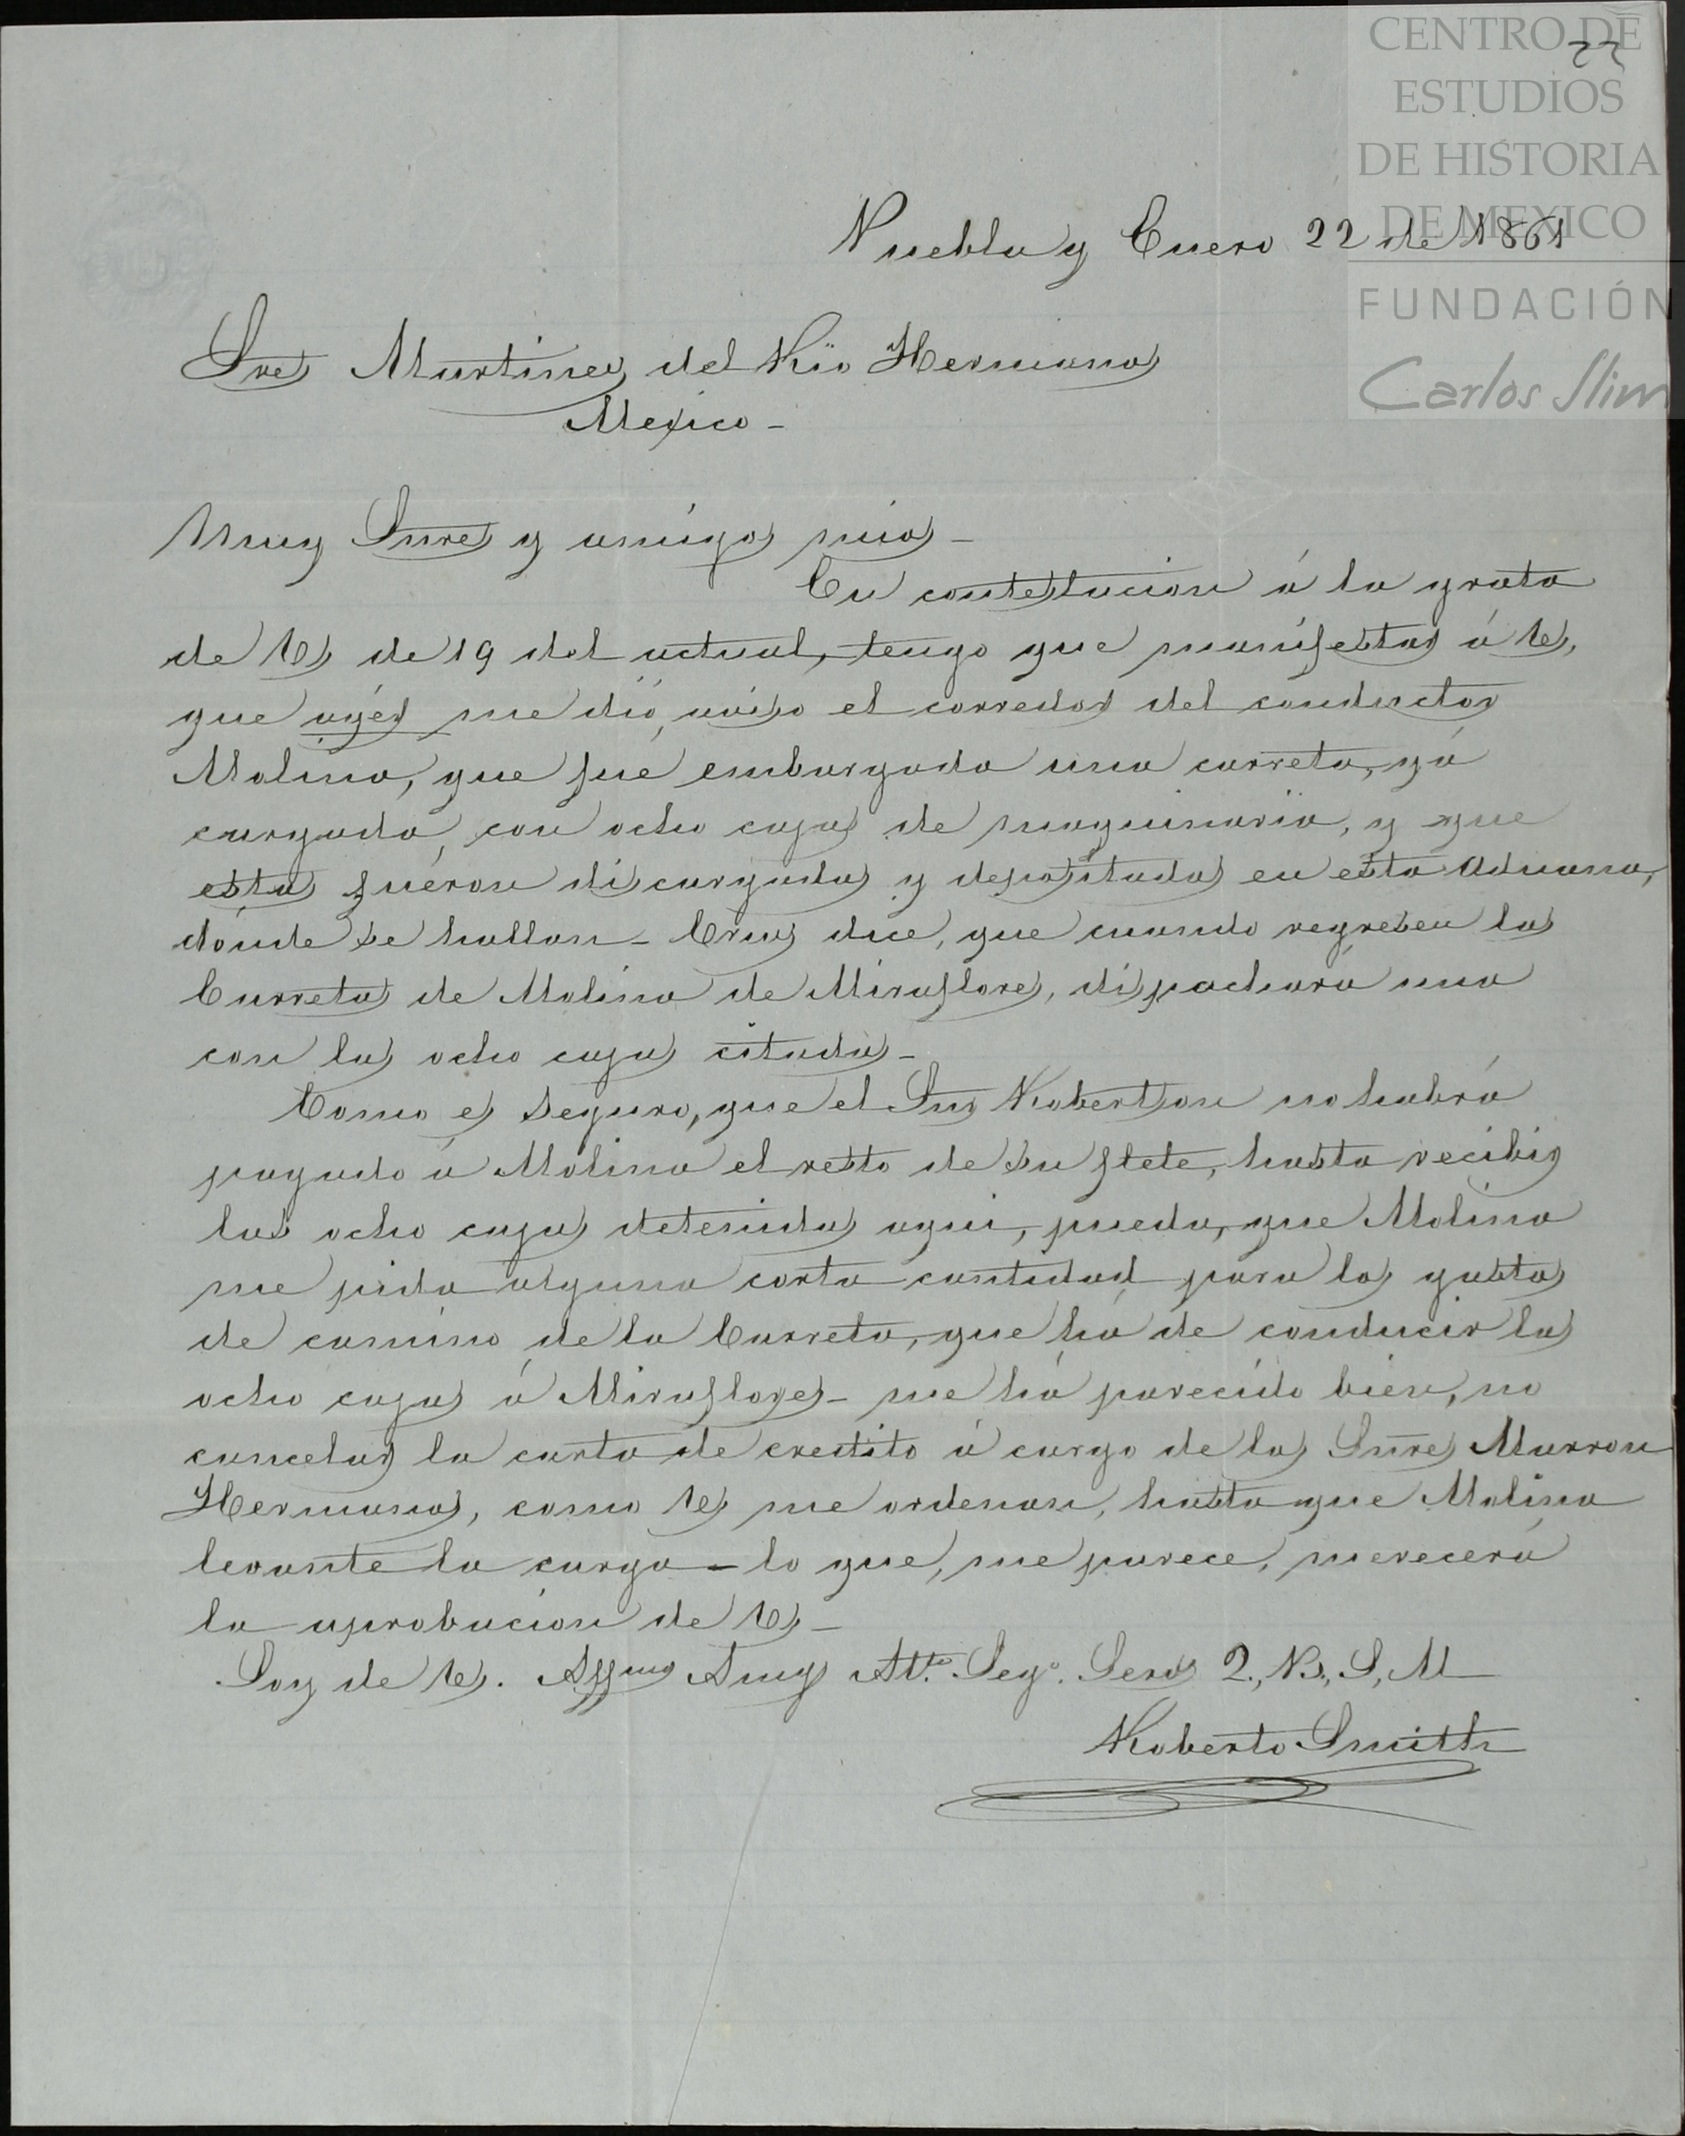 CENTRO DE
ESTUDIOS
DE HISTORIA
DE MEXICO
FUNDACIÓN
Carlos Slim
Puebla y Enero 22 de 1861
Sres Martinez del Rio Hermanos
Mexico -
Muy Snres y amigos mios -
En contestacion á la grata
de Vs de 19 del actual, tengo que manifestar á Vs,
que ayér me dió aviso el corredor del conductor
Molina, que fué embargada una carreta, yá
cargada, con ocho cajas de maquinaria, y que
estas fuéron discargadas y depositadas en esta Aduana,
dónde se hallan - dice, que cuando regresen las
Carretas de Molina de Miraflores, dispachará una
con las ocho cajas citadas -
Como es seguro, que el Snr Robertson no habrá
pagado á Molina el resto de su flete, hasta recibir
las ocho cajas detenidas aqui, pueda, que Molina
me pida alguna corta cantidad para los gastos
de camino de la Carreta, que há de conducir las
ocho cajas á Miraflores - me há parecido bien, no
cancelar la carta de credito á cargo de los Snres Marron
Hermanos, como Vs me ordenan, hasta que Molina
levante la carga - lo que, me parece, merecerá
la aprobacion de Vs -
Soy de Vs. Affmo Amg Atto. Sego. Serv 2., B., S, M
Roberto Smith